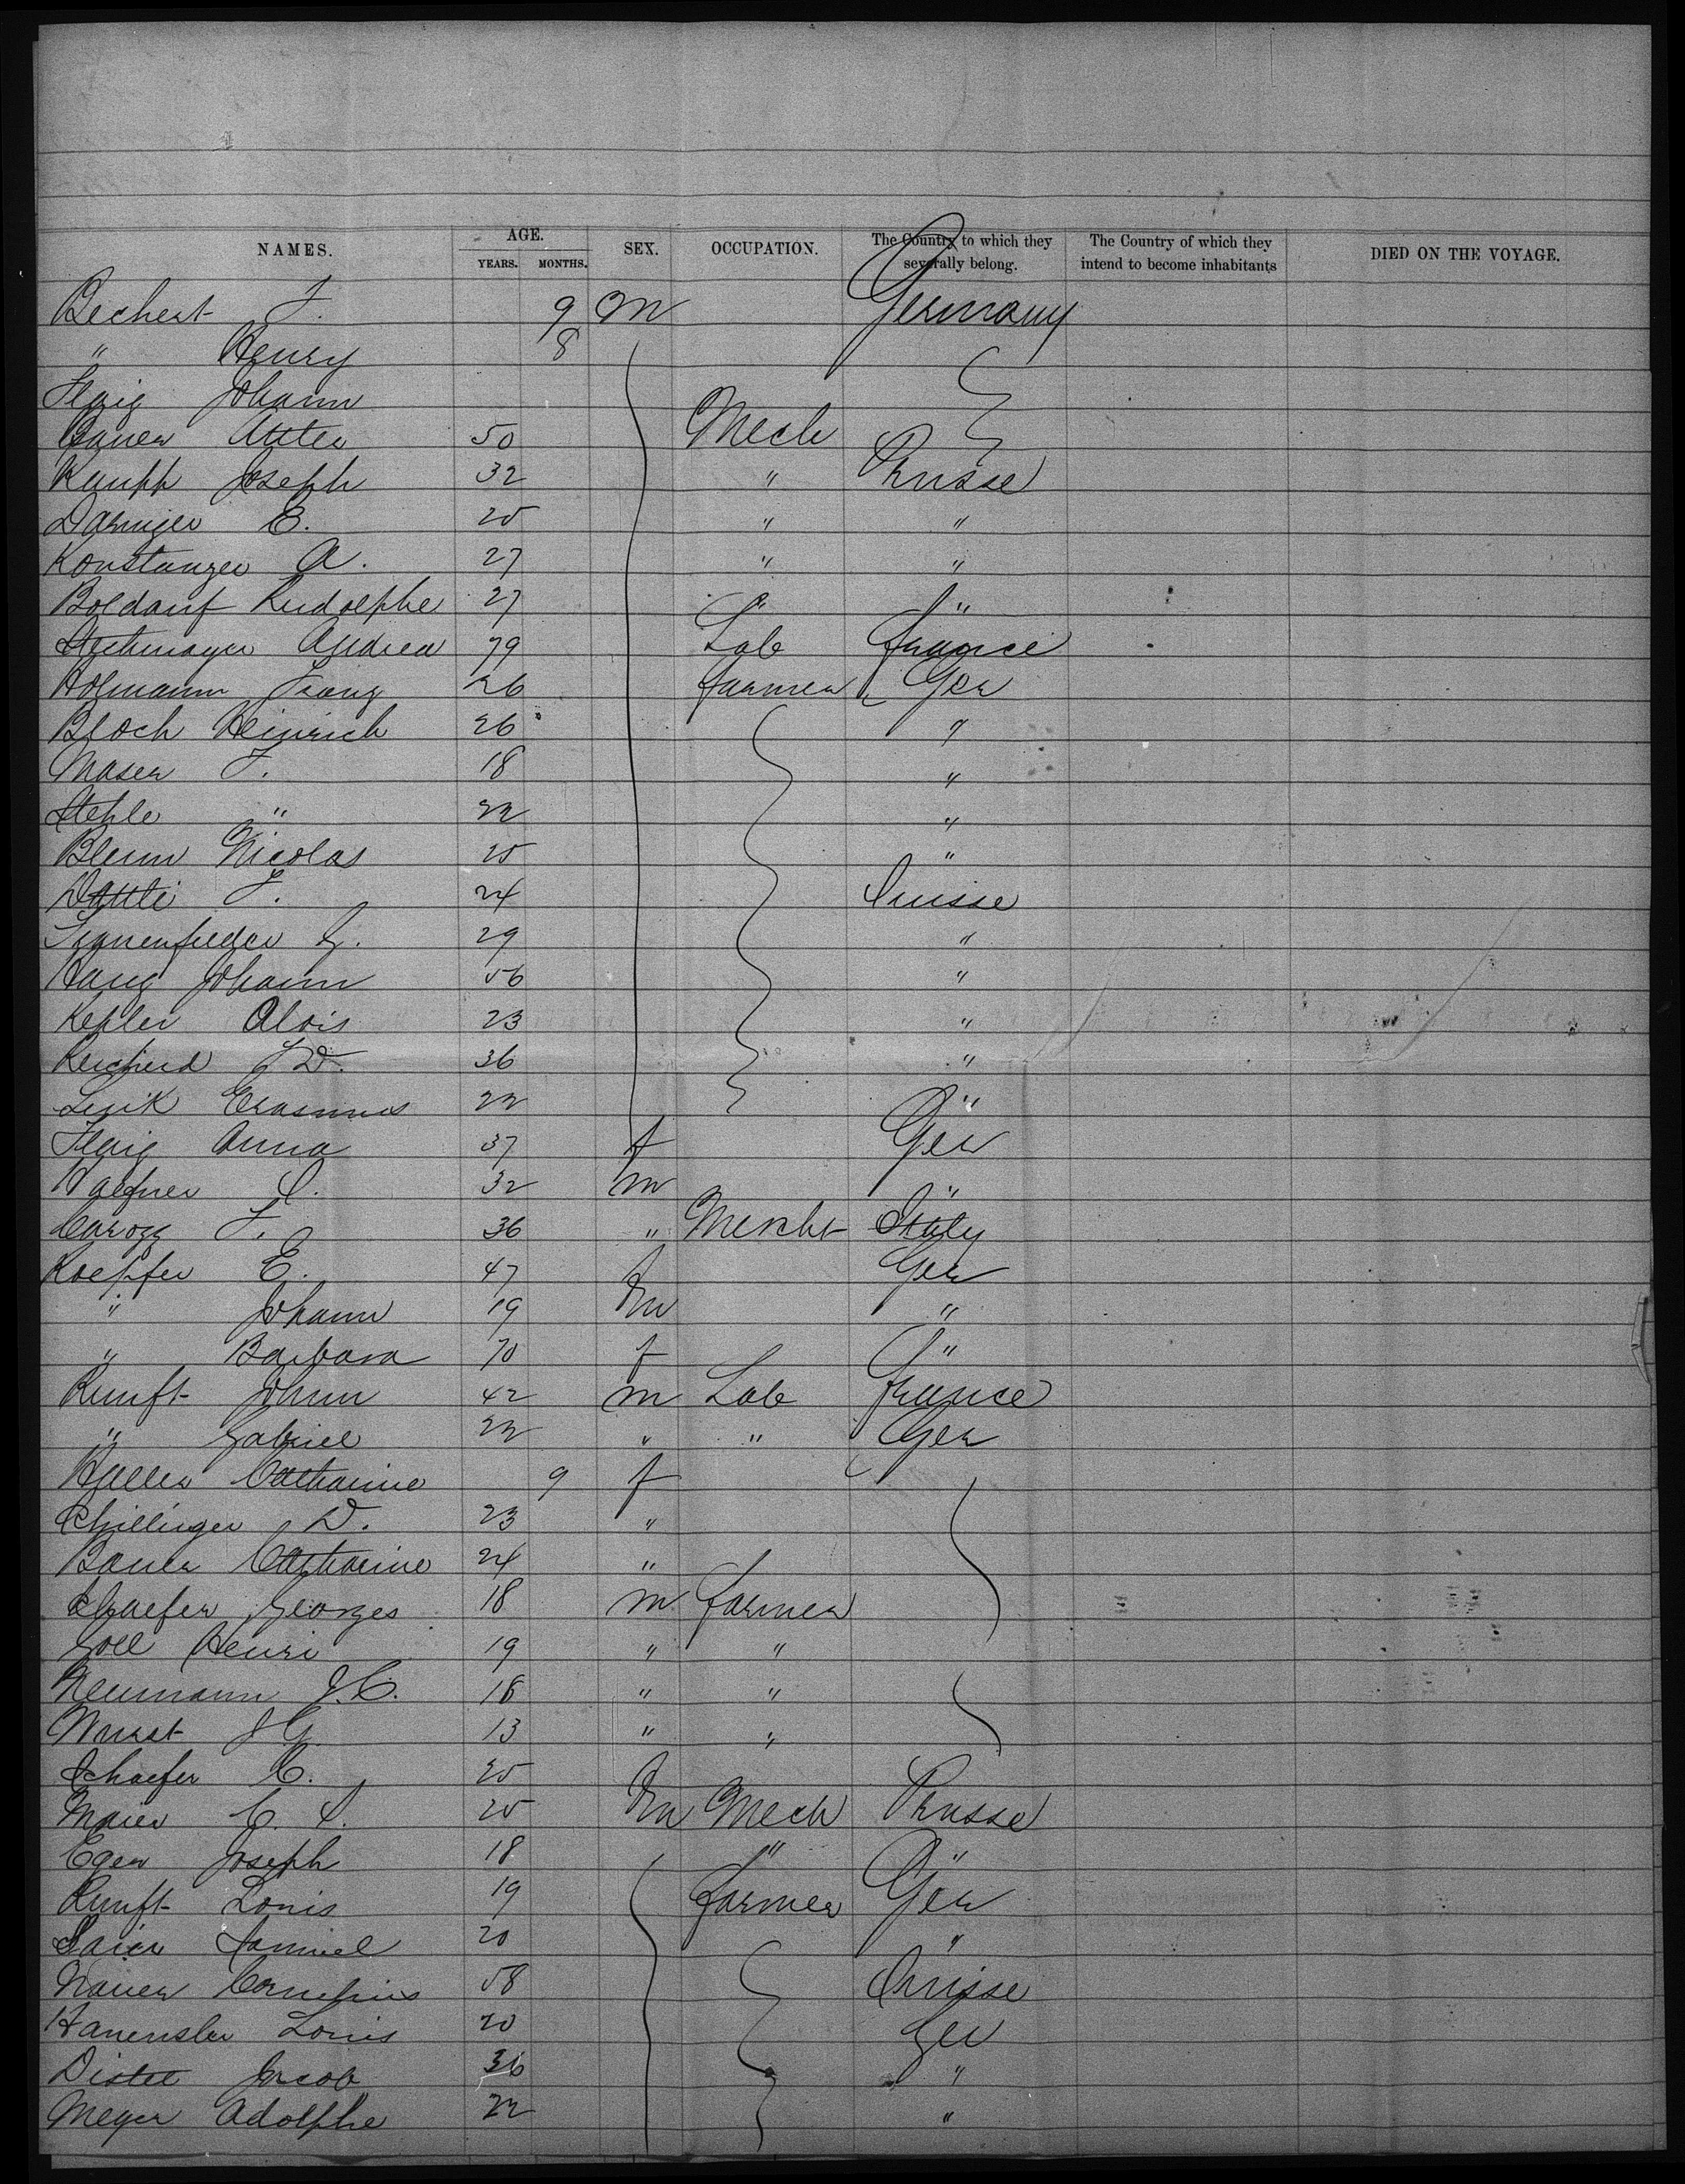 NAMES. AGE. SEX. OCCUPATION. The Country to which they severally belong. The Country of which they intend to become inhabitants DIED ON THE VOYAGE.
YEARS. MONTHS.
Bechert F. 9 M Germany
" Henry 8
Flaig Johann
Bauer 50 Mech
Joseph 32 " Prusse
E. 25 " "
Konstanzer A. 27 " "
Boldauf Rudolphe 27 " "
Andrea 79 Lab france
Holmann Franz 26 farmer Ger
Bloch Heinrich 26 "
Maser F. 18 "
Stehle " 22 "
Blum Nicolas 25 "
F. 24 Suisse
29 "
Haug Johann 56 "
Kehler Alois 23 "
36 "
Erasmus 22 "
Flaig Anna 37 f Ger
32 m "
Carozz F. 36 " Mercht Italy
Koepfer E. 47 f Ger
" Johann 19 m "
" Barbara 70 f "
Runft Johnn 42 m Lab france
" Gabriel 22 " " Ger
Haller Catharine 9 f
D. 23 "
Bauer Catharine 24 "
Schaefer Georges 18 m farmer
Goll Henri 19 " "
Neumann J. C. 18 " "
Wurst J G. 13 " "
Schaefer C. 25 f
Maier C. S. 25 m Mech Prusse
Eger Joseph 18 " "
Runft Louis 19 farmer Ger
Samuel 20 "
Cornelius 58 Suisse
Louis 20 Ger
Distel Jacob 36 "
Meyer Adolphe 22 "